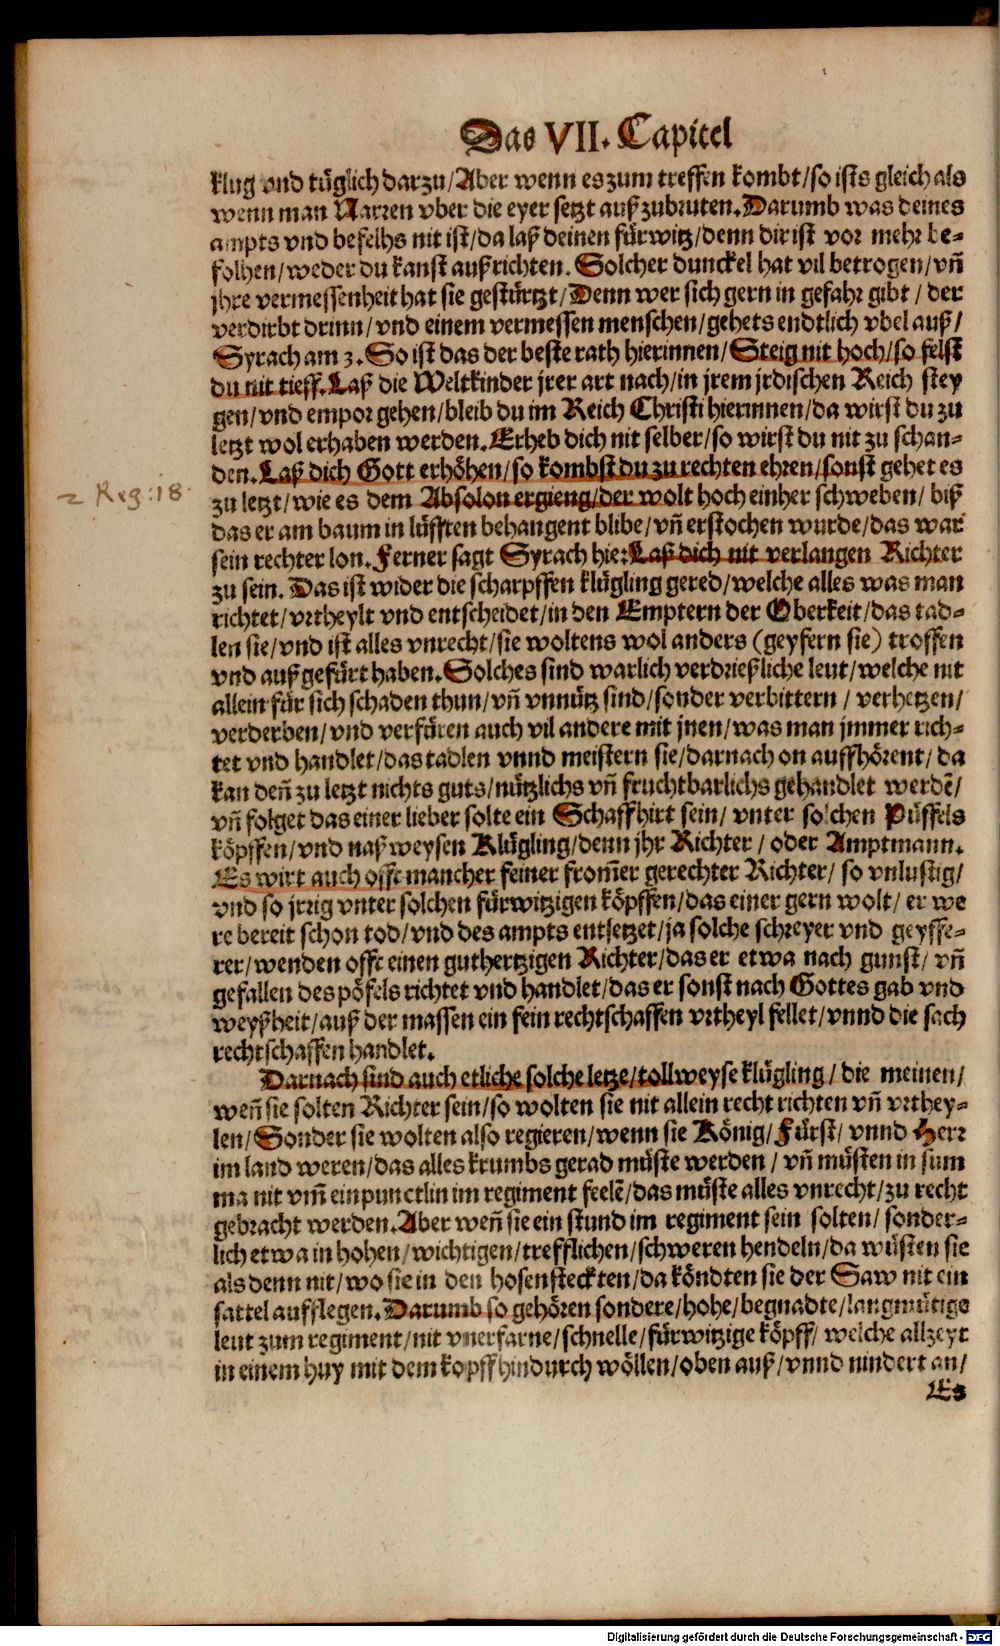 Das VII. Capitel
klug vnd tüglich darzu/Aber wenn es zum treffen kombt/so ists gleich als
wenn man Narren vber die eyer setzt auß zubruten. Darumb was deines
ampts vnd befelhs nit ist/da laß deinen fürwitz/denn dir ist vor mehr be-
folhen/weder du kanst außrichten. Solcher dunckel hat vil betrogen/vñ
jhre vermessenheit hat sie gestürtzt/Denn wer sich gern in gefahr gibt/der
verdirbt drinn/vnd einem vermessen menschen/gehets endtlich vbel auß/
Syrach am 3. So ist das der beste rath hierinnen/Steig nit hoch/so felst
du nit tieff. Laß die Weltkinder jrer art nach/in jrem jrdischen Reich stey
gen/vnd empor gehen/bleib du im Reich Christi hierinnen/da wirst du zu
letzt wol erhaben werden. Erheb dich nit selber/so wirst du nit zu schan-
den. Laß dich Gott erhöhen/so kombst du zu rechten ehren/sonst gehet es
2 Reg: 18.
zu letzt/wie es dem Absolon ergieng/der wolt hoch einher schweben/biß
das er am baum in lüfften behangent blibe/vñ erstochen wurde/das war
sein rechter lon. Ferner sagt Syrach hie: Laß dich nit verlangen Richter
zu sein. Das ist wider die scharpffen klügling gered/welche alles was man
richtet/vrtheylt vnd entscheidet/in den Emptern der Oberkeit/das tad-
len sie/vnd ist alles vnrecht/sie woltens wol anders (geyfern sie) troffen
vnd außgefürt haben. Solches sind warlich verdrießliche leut/welche nit
allein für sich schaden thun/vñ vnnütz sind/sonder verbittern/verhetzen/
verderben/vnd verfüren auch vil andere mit jnen/was man jmmer rich-
tet vnd handlet/das tadlen vnnd meistern sie/darnach on auffhörent/da
kan deñ zu letzt nichts guts/nützlichs vñ fruchtbarlichs gehandlet werdē/
vñ folget das einer lieber solte ein Schaffhirt sein/vnter solchen Püffels
köpffen/vnd naßweysen Klügling/denn jhr Richter/oder Amptmann.
Es wirt auch offt mancher feiner from̃er gerechter Richter/so vnlustig/
vnd so jrrig vnter solchen fürwitzigen köpffen/das einer gern wolt/er we
re bereit schon tod/vnd des ampts entsetzet/ja solche schreyer vnd geyffe-
rer/wenden offt einen guthertzigen Richter/das er etwa nach gunst/vñ
gefallen des pöfels richtet vnd handlet/das er sonst nach Gottes gab vnd
weyßheit/auß der massen ein fein rechtschaffen vrtheyl fellet/vnnd die sach
rechtschaffen handlet.
Darnach sind auch etliche solche letze/tollweyse klügling/die meinen/
weñ sie solten Richter sein/so wolten sie nit allein recht richten vñ vrthey-
len/Sonder sie wolten also regieren/wenn sie König/Fürst/vnnd Herr
im land weren/das alles krumbs gerad müste werden/vñ müsten in sum
ma nit vm̃ ein punctlin im regiment feelē/das müste alles vnrecht/zu recht
gebracht werden. Aber weñ sie ein stund im regiment sein solten/sonder-
lich etwa in hohen/wichtigen/trefflichen/schweren hendeln/da wüsten sie
als denn nit/wo sie in den hosen steckten/da köndten sie der Saw nit ein
sattel aufflegen. Darumb so gehören sondere/hohe/begnadte/langmütige
leut zum regiment/nit vnerfarne/schnelle/fürwitzige köpff/welche allzeyt
in einem huy mit dem kopff hindurch wöllen/oben auß/vnnd nindert an/
Es
Digitalisierung gefördert durch die Deutsche Forschungsgemeinschaft - DFG